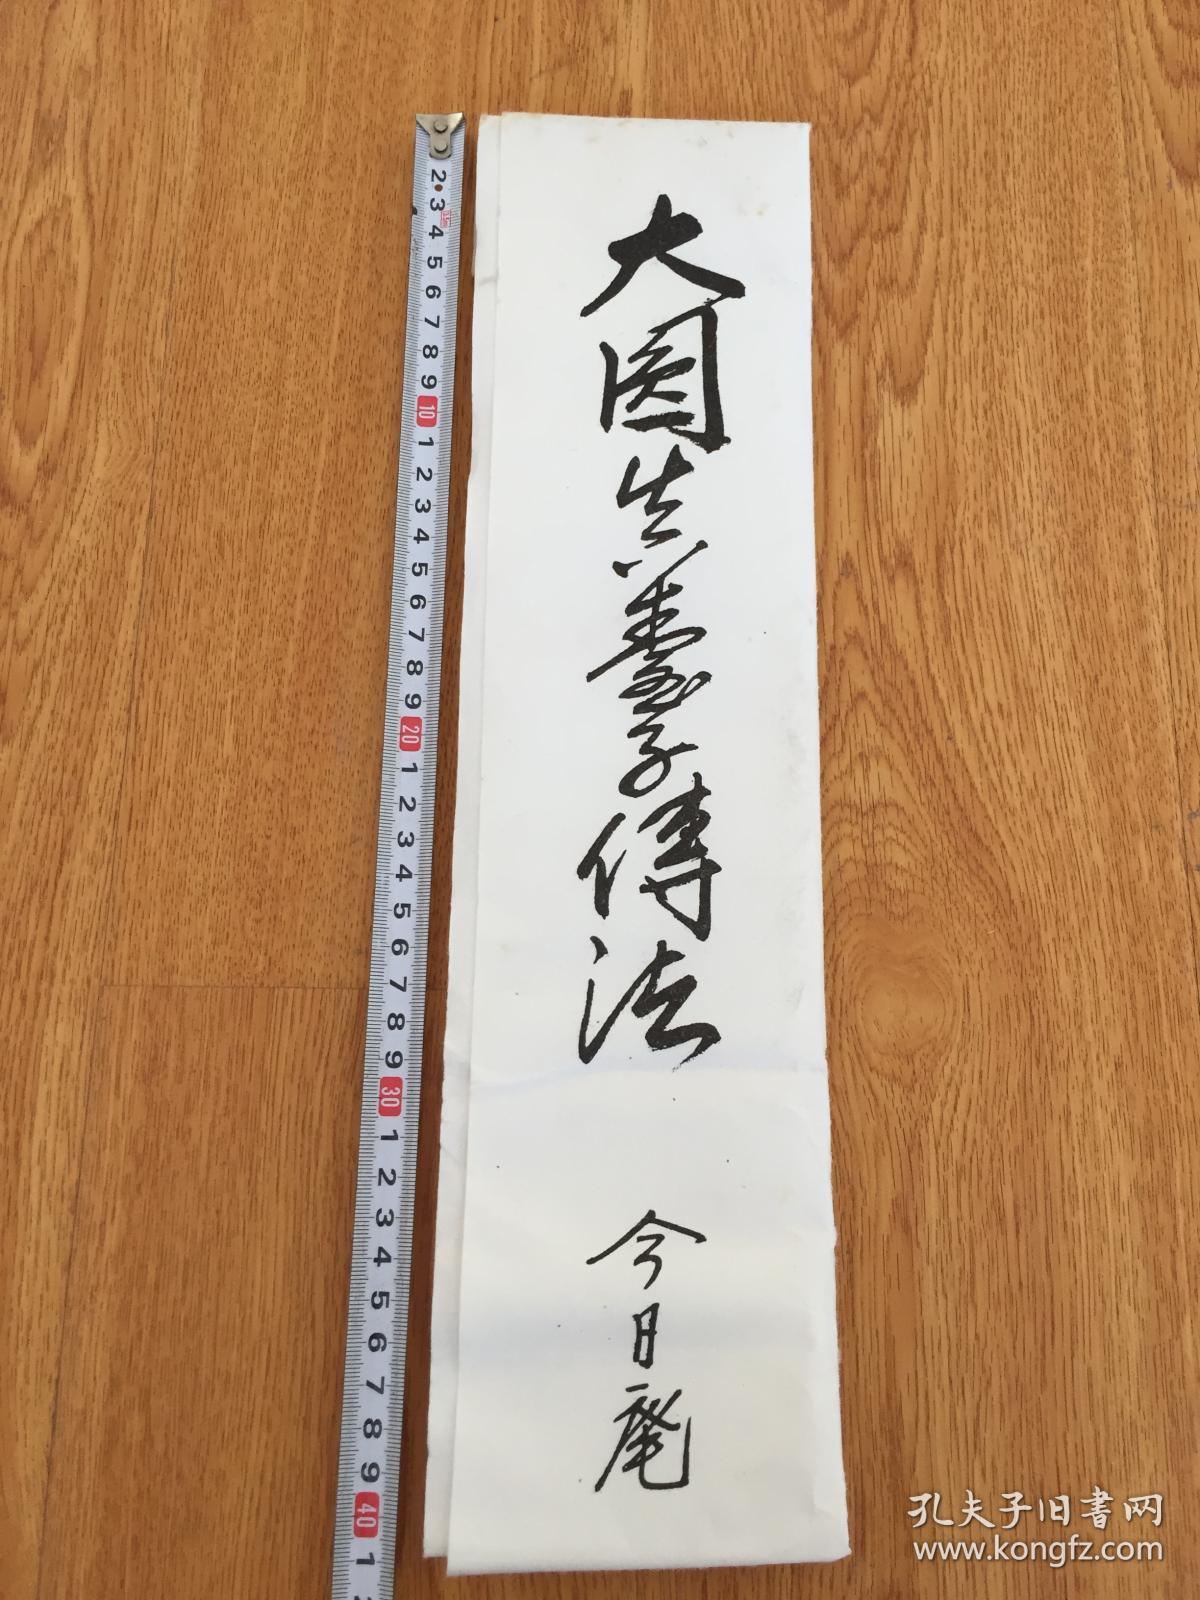 大圓真臺子傳法
今日庵
2 3 4 5 6 7 8 9 10 1 2 3 4 5 6 7 8 9 20 1 2 3 4 5 6 7 8 9 30 1 2 3 4 5 6 7 8 9 40 1
孔夫子旧書网
www.kongfz.com